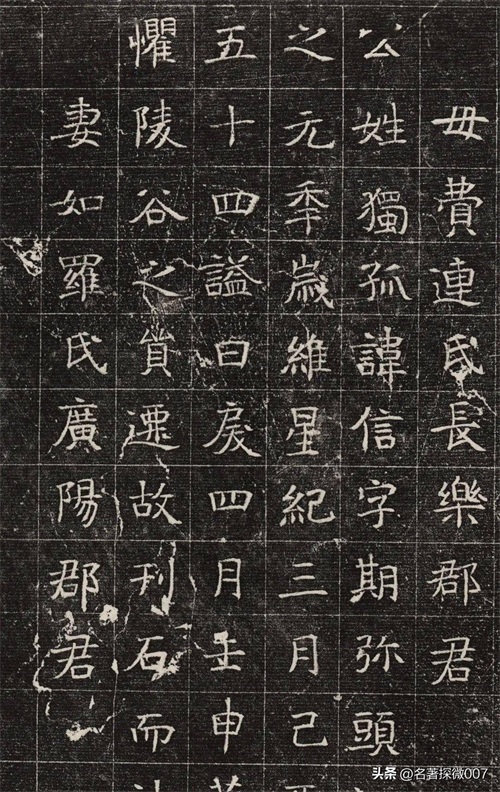 母費連氏長樂郡君
公姓獨孤諱信字期弥頭
之元秊歲維星紀三月己
五十四謚曰戾四月壬申
懼陵谷之貿遷故刊石而
妻如羅氏廣陽郡君
头条 @名著探微007